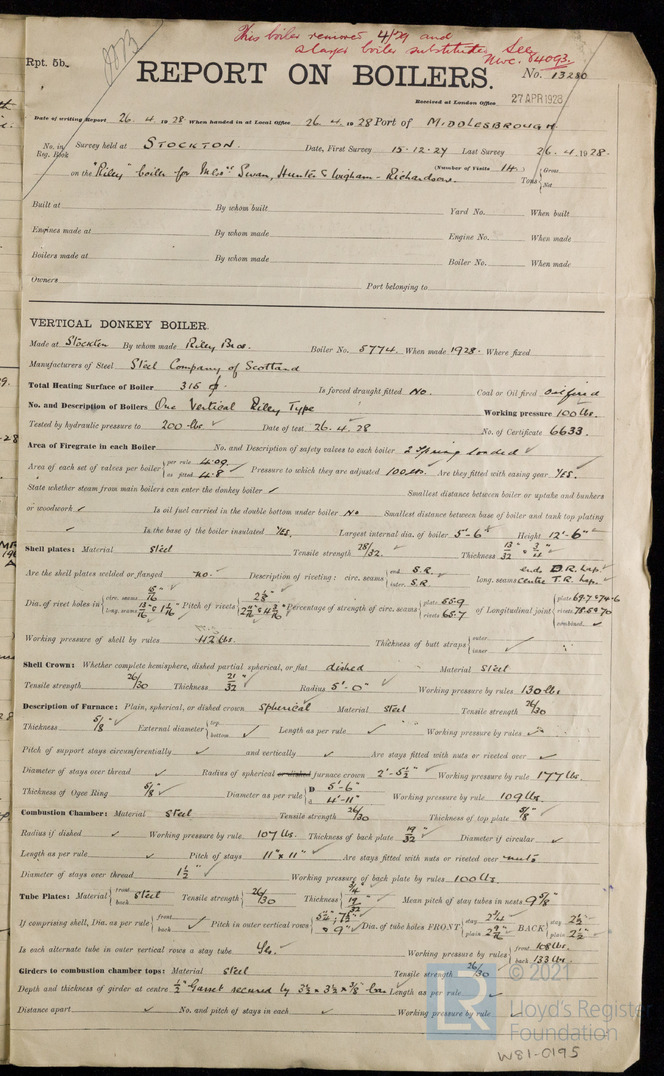 This boiler removed 4/29 and
a larger boiler substituted. See
Nwc. 84093.
Rpt. 5b.
REPORT ON BOILERS.
No. 13280
Received at London Office 27 APR 1928
Date of writing Report 26. 4. 1928 When handed in at Local Office 26. 4. 1928 Port of MIDDLESBROUGH
No. in Reg. Book Survey held at STOCKTON. Date, First Survey 15-12-27 Last Survey 26. 4. 1928.
(Number of Visits 14)
on the "Riley" boiler for Messrs Swan, Hunter & Wigham-Richardsons. Tons { Gross Net
Built at By whom built Yard No. When built
Engines made at By whom made Engine No. When made
Boilers made at By whom made Boiler No. When made
Owners Port belonging to
VERTICAL DONKEY BOILER.
Made at Stockton By whom made Riley Bros. Boiler No. 5774. When made 1928. Where fixed
Manufacturers of Steel Steel Company of Scotland
Total Heating Surface of Boiler 315 Is forced draught fitted No. Coal or Oil fired Oil fired
No. and Description of Boilers One Vertical Riley Type Working pressure 100 lbs.
Tested by hydraulic pressure to 200 lbs Date of test 26. 4. 28 No. of Certificate 6633.
Area of Firegrate in each Boiler No. and Description of safety valves to each boiler 2 Spring Loaded
Area of each set of valves per boiler { per rule 4.09 as fitted 4.8 Pressure to which they are adjusted 100 lbs. Are they fitted with easing gear YES.
State whether steam from main boilers can enter the donkey boiler ✓ Smallest distance between boiler or uptake and bunkers
or woodwork ✓ Is oil fuel carried in the double bottom under boiler No Smallest distance between base of boiler and tank top plating
✓ Is the base of the boiler insulated YES. Largest internal dia. of boiler 5'-6" Height 12'-6"
Shell plates: Material steel Tensile strength 28/32. Thickness 13/32" & 3/4"
Are the shell plates welded or flanged no. Description of riveting: circ. seams { end S.R. inter. S.R. long. seams ends D.R. Lap. centre T.R. Lap.
Dia. of rivet holes in { circ. seams 15/16" long. seams Pitch of rivets { 2 1/8" Percentage of strength of circ. seams { plate 55.9 rivets 65.7 of Longitudinal joint { plate 69.7 & 74.6 rivets 78.5 & 70 combined ✓
Working pressure of shell by rules 112 lbs. Thickness of butt straps { outer inner ✓
Shell Crown: Whether complete hemisphere, dished partial spherical, or flat dished Material steel
Tensile strength 26/30 Thickness 21/32" Radius 5'-0" Working pressure by rules 130 lbs
Description of Furnace: Plain, spherical, or dished crown Spherical Material steel Tensile strength 26/30
Thickness 5/8" External diameter { top bottom ✓ Length as per rule ✓ Working pressure by rules ✓
Pitch of support stays circumferentially ✓ and vertically ✓ Are stays fitted with nuts or riveted over ✓
Diameter of stays over thread ✓ Radius of spherical or dished furnace crown 2'-5 1/2" Working pressure by rule 177 lbs
Thickness of Ogee Ring 5/8" Diameter as per rule { D 5'-6" d 4'-11" Working pressure by rule 109 lbs.
Combustion Chamber: Material steel Tensile strength 26/30 Thickness of top plate 5/8"
Radius if dished ✓ Working pressure by rule 107 lbs. Thickness of back plate 19/32" Diameter if circular ✓
Length as per rule ✓ Pitch of stays 11" x 11" Are stays fitted with nuts or riveted over nuts
Diameter of stays over thread 1 1/2" Working pressure of back plate by rules 100 lbs.
Tube Plates: Material { front back steel Tensile strength { 26/30 Thickness { 3/4" 19/32 Mean pitch of stay tubes in nests 9 5/8"
If comprising shell, Dia. as per rule { front back ✓ Pitch in outer vertical rows { x 9" Dia. of tube holes FRONT { stay 2 3/4" plain 2 9/16" BACK { stay 2 1/2" plain 2 1/2"
Is each alternate tube in outer vertical rows a stay tube Yes. Working pressure by rules { front 108 lbs. back 133 lbs.
Girders to combustion chamber tops: Material steel Tensile strength 26/30
Depth and thickness of girder at centre 1/2" Gusset secured by 3 1/2 x 3 1/2 x 3/8" bars Length as per rule ✓
Distance apart ✓ No. and pitch of stays in each ✓ Working pressure by rule ✓
© 2021
LR
Lloyd's Register
Foundation
W81-0195